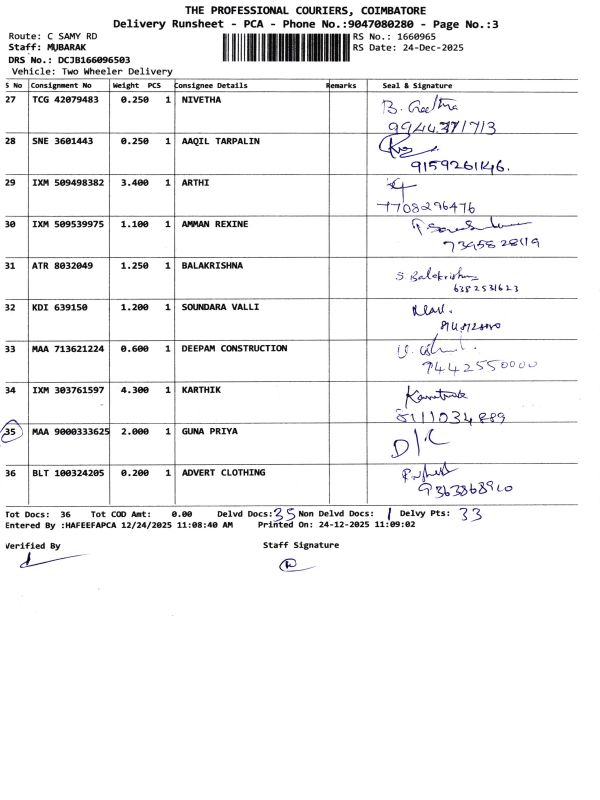 THE PROFESSIONAL COURIERS, COIMBATORE
Delivery Runsheet - PCA - Phone No.:9047080280 - Page No.:3
Route: C SAMY RD RS No.: 1660965
Staff: MUBARAK RS Date: 24-Dec-2025
DRS No.: DCJB166096503
Vehicle: Two Wheeler Delivery
S No Consignment No Weight PCS Consignee Details Remarks Seal & Signature
27 TCG 42079483 0.250 1 NIVETHA B. Geetha
28 SNE 3601443 0.250 1 AAQIL TARPALIN
9159261146.
29 IXM 509498382 3.400 1 ARTHI
7708296476
30 IXM 509539975 1.100 1 AMMAN REXINE
31 ATR 8032049 1.250 1 BALAKRISHNA
S. Balakrishna
6382531623
32 KDI 639150 1.200 1 SOUNDARA VALLI
33 MAA 713621224 0.600 1 DEEPAM CONSTRUCTION
7442550000
34 IXM 303761597 4.300 1 KARTHIK
35 MAA 9000333625 2.000 1 GUNA PRIYA D/C
36 BLT 100324205 0.200 1 ADVERT CLOTHING
Tot Docs: 36 Tot COD Amt: 0.00 Delvd Docs: 35 Non Delvd Docs: 1 Delvy Pts: 33
Entered By :HAFEEFAPCA 12/24/2025 11:08:40 AM Printed On: 24-12-2025 11:09:02
Verified By Staff Signature